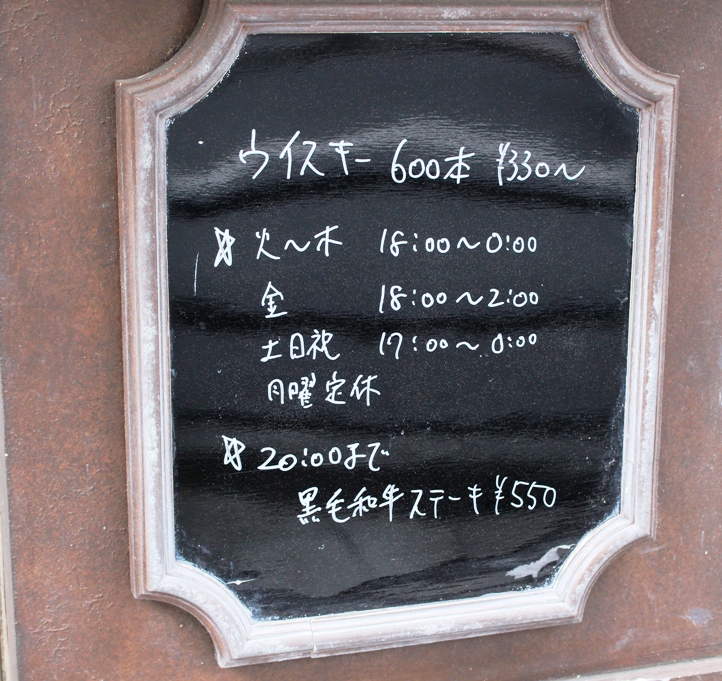 ウイスキー 600本 ¥330～
火～木 18:00～0:00
金 18:00～2:00
土日祝 17:00～0:00
月曜定休
20:00まで
黒毛和牛ステーキ¥550